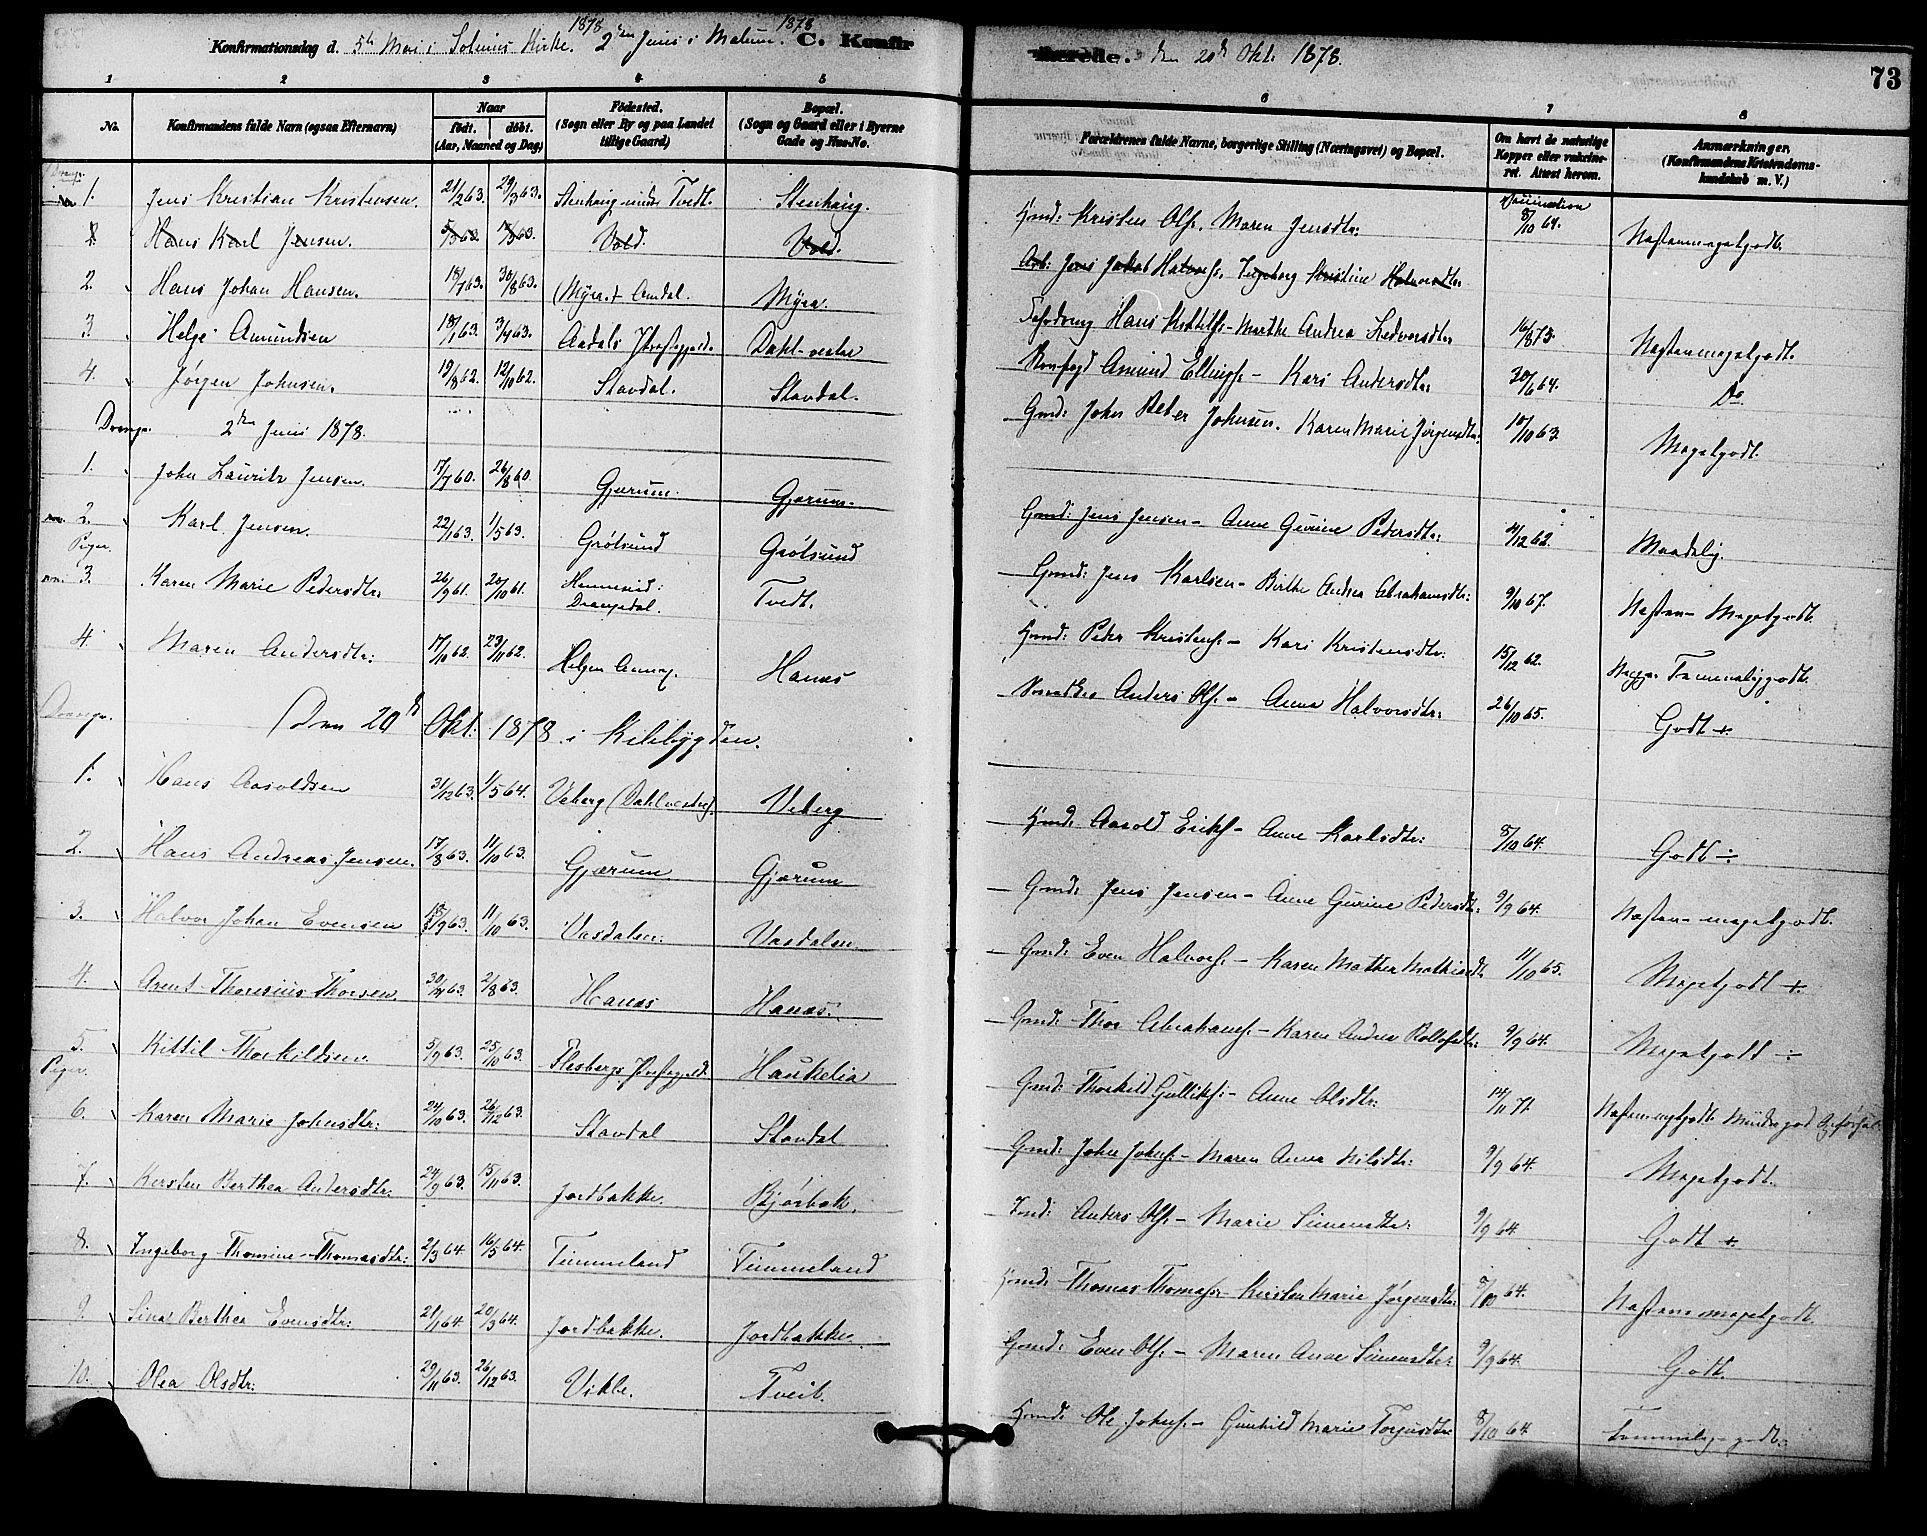 Konfirmationsdag d. 5te Mai i Solums Kirke. 1878 2den Juni i Mælum. 1878 C. Konfirmerede. den 20de Okt. 1878.
73
1 2 3 4 5 6 7 8
No.
Konfirmandens fulde Navn (ogsaa Efternavn)
Naar
født. døbt.
(Aar, Maaned og Dag)
Fødested.
(Sogn eller By og paa Landet
tillige Gaard)
Bopæl.
(Sogn og Gaard eller i Byerne
Gade og Hus-No.
Forældrenes fulde Navne, borgerlige Stilling (Næringsvei) og Bopæl.
Om havt de naturlige
Kopper eller vakcine-
ret. Attest herom.
Anmærkninger.
(Konfirmandens Kristendoms-
kundskab m. V.)
Drenge.
1. Jens Kristian Kristensen. 21/2 63. 29/3 63. Stenhaug under Tvedt. Stenhaug. Gmd: Kristen Ols. Maren Jensdtr: 8/10 64. Næsten megetgodt.
2. Hans Karl Jensen. 5/3 63. Vold. Vold. Arb: Jens Jakob Halvors. Ingeborg Kristine Halvorsdtr:
2. Hans Johan Hansen. 18/7 63. 30/8 63. (Myra) Amdal. Myra. Hans Kittils. - Marthe Andrea Ledvorsdtr: 16/8 73. Næsten megetgodt.
3. Helge Amundsen 18/1 63. 3/4 63. Aadals Præstegjeld. Dahl-vestre Amund Ellings. - Kari Andersdtr: 30/6 64. Do.
4. Jørgen Johnsen. 19/8 62. 12/10 62. Stavdal. Stavdal. Gmd: John Peter Johnsen. Karen Marie Jørgensdtr. 10/10 63. Megetgodt.
Drenge. 2den Juni 1878.
1. John Lauritz Jensen. 17/7 60. 26/8 60. Gjærum. Gjærum. Gmd: Jens Jensen - Anne Gurine Pedersdtr: 4/12 62. Maadelig.
2. Karl Jensen. 22/1 63. 1/5 63. Grøtsund Grøtsund Gmd: Jens Karlsen - Birthe Andrea Abrahamsdtr: 9/10 67. Næsten - Megetgodt.
Piger.
3. Karen Marie Pedersdtr. 26/9 61. 20/10 61. Henneseid: Drangedal. Tvedt. Gmd: Peder Kristens. - Kari Kristensdtr: 15/12 62. Temmeliggodt.
4. Maren Andersdtr: 17/10 62. 23/11 62. Helgen Annex. Hanæs Anders Ols. - Anne Halvorsdtr: 26/10 65. Godt +
Drenge. Den 20de Okt: 1878 i Kilebygden.
1. Hans Aasoldsen 31/12 63. 1/5 64. Veberg (Dahl vestre). Veberg Gmd: Aasold Eriks. - Anne Karlsdtr: 8/10 64. Godt ÷
2. Hans Andreas Jensen. 17/8 63. 11/10 63. Gjærum Gjærum Gmd: Jens Jensen - Anne Gurine Pedersdtr. 9/9 64. Næsten - megetgodt.
3. Halvor Johan Evensen 18/9 63. 11/10 63. Vasdalen. Vasdalen Gmd: Even Halvors. - Karen Mathea Mathisdtr 11/10 65. Megetgodt +
4. Arent Thoresius Thorsen. 30/4 63. 2/8 63. Hanæs Hanæs. Gmd: Thor Abrahams. - Karen Andrea Rollefsdtr: 9/9 64. Megetgodt ÷
5. Kittil Thorkildsen. 5/9 63. 25/10 63. Flesbergs Præstegjeld. Haukelia Gmd: Thorkild Gulliks. - Anne Olsdtr: 14/11 71. Næsten megetgodt. Mindre god Opførsel.
Piger.
6. Karen Marie Johnsdtr: 24/10 63. 26/12 63. Stavdal Stavdal Gmd: John Johns. - Maren Anne Nilsdtr: 9/9 64. Megetgodt.
7. Kirsten Berthea Andersdtr. 24/9 63. 15/11 63. Jordbakke. Bjørbak. Ind: Anders Ols. - Marie Simensdtr: 9/9 64 Godt +
8. Ingeborg Thomine Thomasdtr: 2/3 64 16/5 64. Timmeland Timmeland Gmd: Thomas Thomass. - Kirsten Marie Jørgensdtr. 8/10 64. Næsten megetgodt.
9. Sina Berthea Evensdtr: 21/1 64. 20/3 64. Jordbakke. Jordbakke. Gmd: Even Ols. - Maren Anne Simensdtr: 9/9 64. Godt.
10. Olea Olsdtr: 29/11 63. 26/12 63. Vible. Tveit. Gmd: Ole Johns. - Gunhild Marie Torjusdtr. 8/10 64. Temmelig godt.